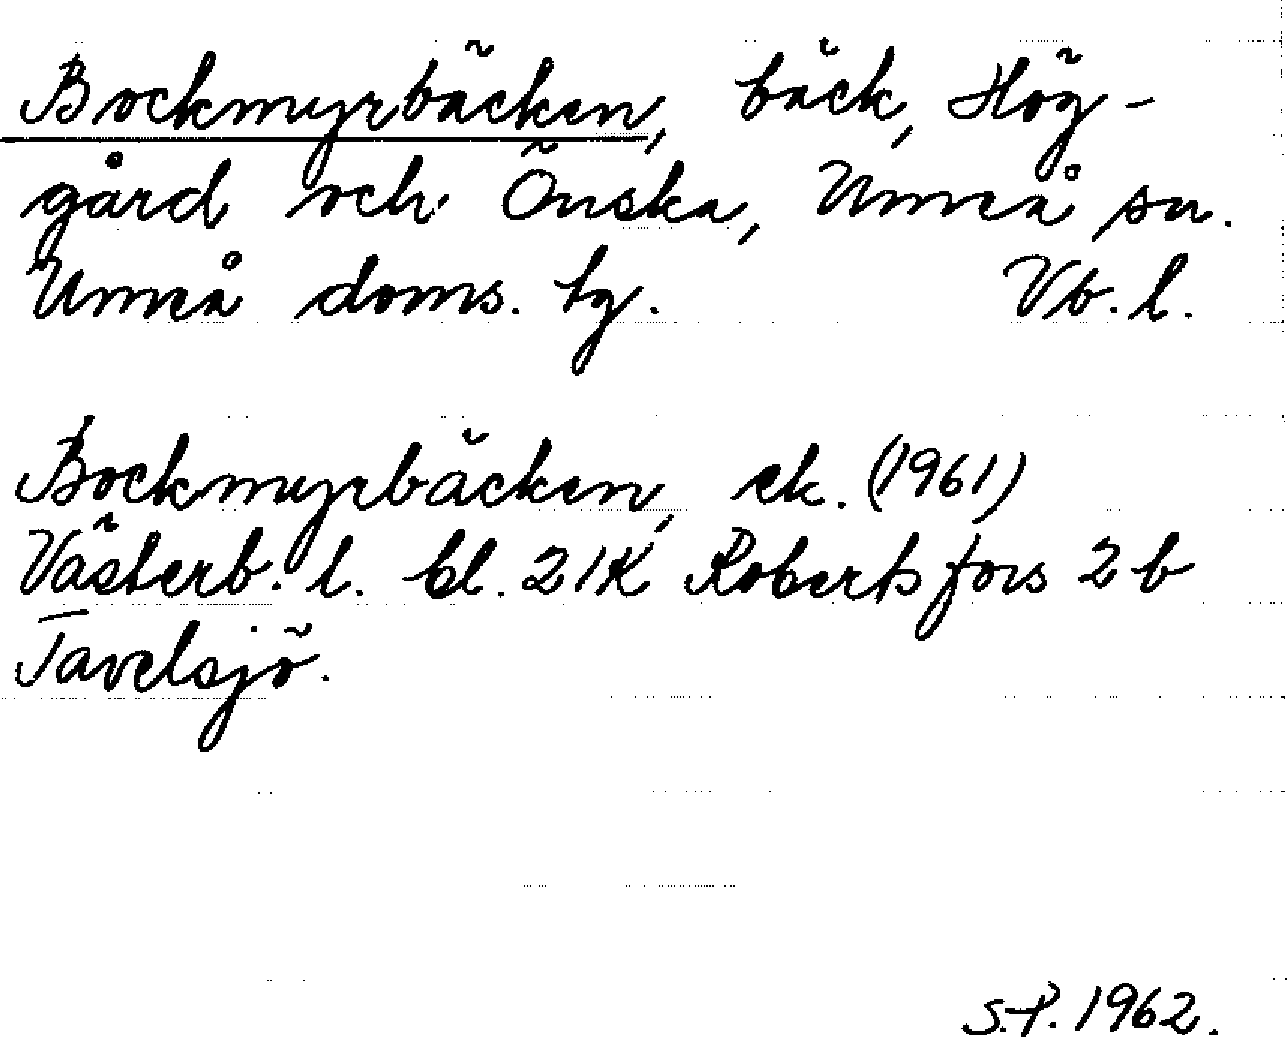 Bockmyrbäcken, bäck, Hög-
gård och Önska, Umeå sn.
Umeå doms. tg. Vb. l.
Bockmyrbäcken, ek. (1961)
Västerb. l. bl. 21K Robertsfors 2 b
Tavelsjö.
S.P. 1962.